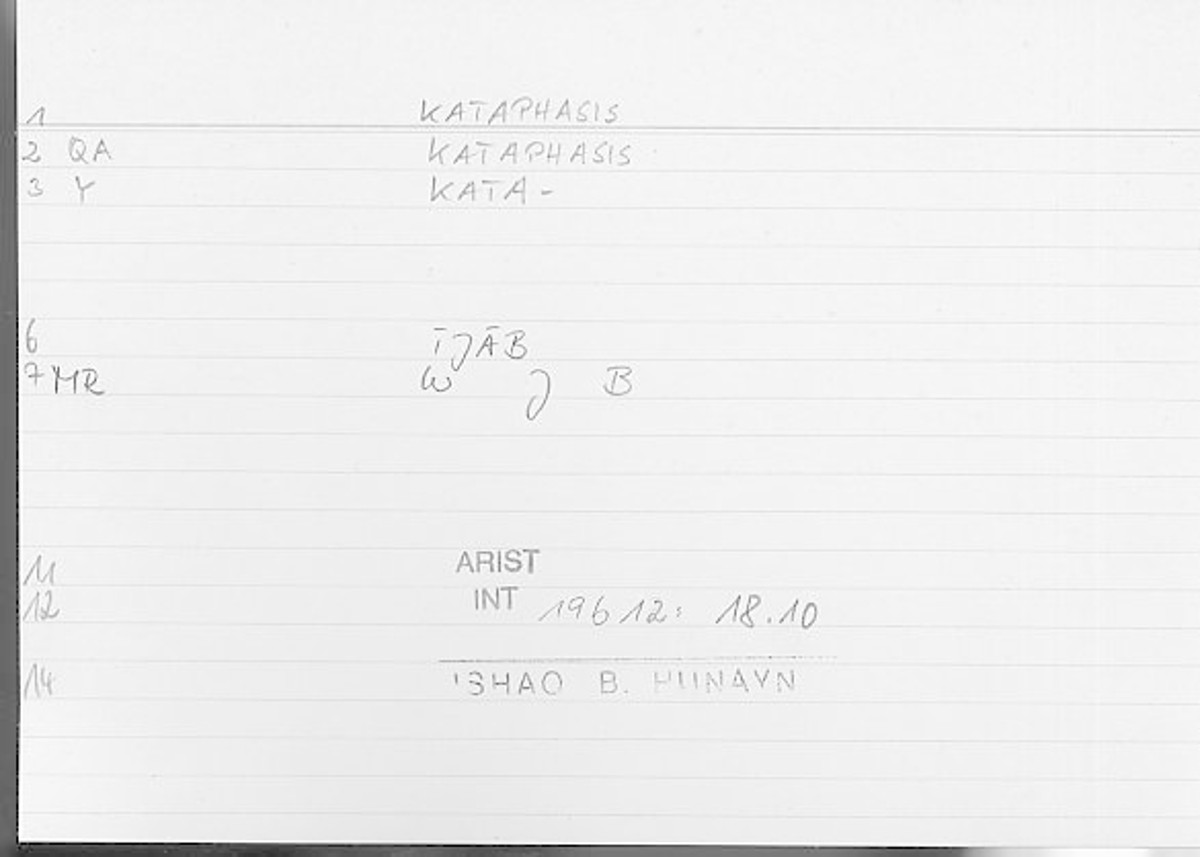 1 KATAPHASIS
2 QA KATAPHASIS
3 Y KATA-
6 ĪJĀB
7 MR W J B
11 ARIST
12 INT 19612: 18.10
14 ISHAQ B. HUNAYN